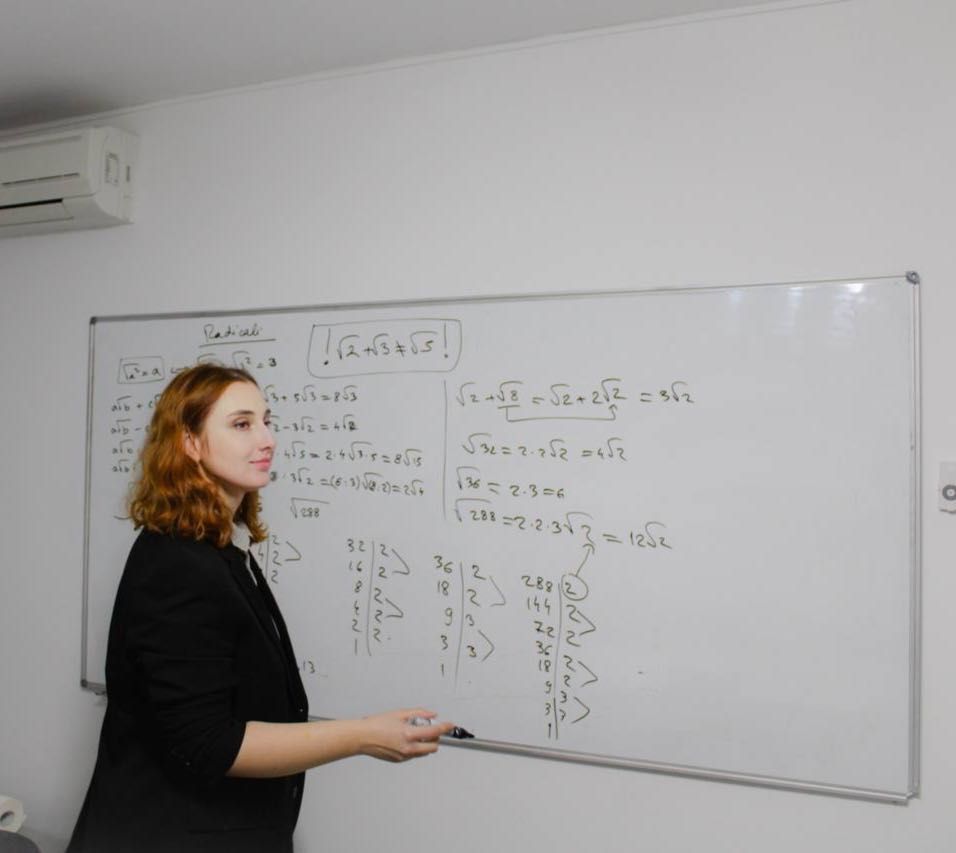 Radicali
!√2+√3≠√5!
√a²=a
²=3
a√b +
√3+5√3=8√3
a√b -
-3√2=4√2
a√b
4√5=2·4√3·5=8√15
a√b
·3√2=(6:3)√(8·2)=2√4
√288
√2+√8=√2+2√2=3√2
√32=2·2√2=4√2
√36=2·3=6
√288=2·2·3√2=12√2
4 2
2
2
32 2
16 2
8 2
4 2
2 2
1
36 2
18 2
9 3
3 3
1
288 2
144 2
72 2
36 2
18 2
9 3
3 3
1
13